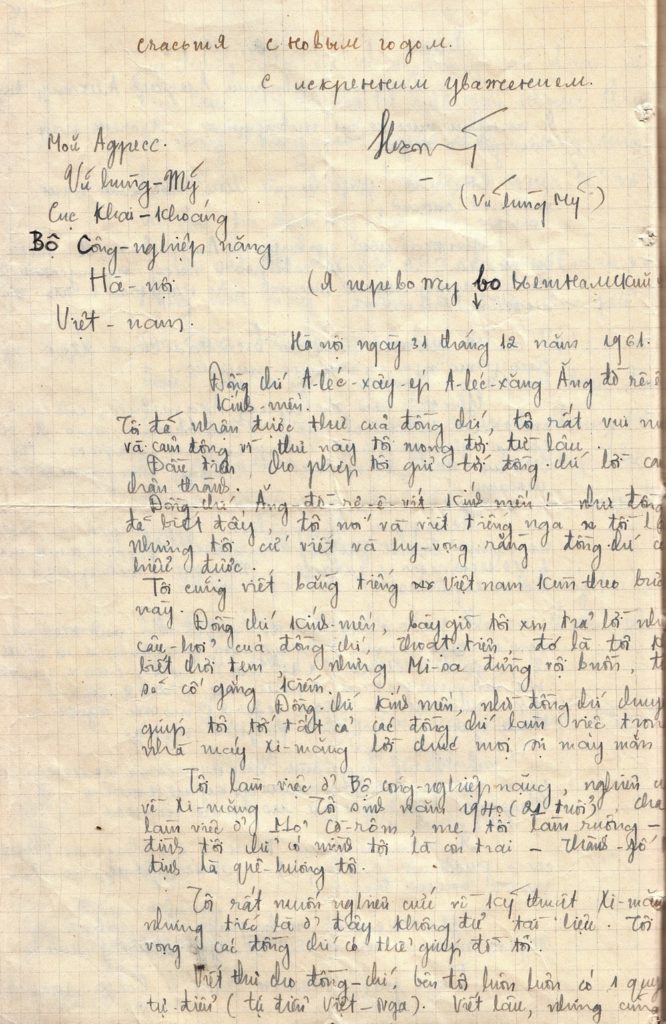 счастья с новым годом.
с искренним уважением.
Мой Адресс.
Vũ hùng-Mỹ
(Vũ hùng Mỹ)
Cục Khai-Khoáng
Bộ Công-nghiệp nặng
Hà-nội
(я перевожу во вьетнамский
Việt-nam.
Hà nội ngày 31 tháng 12 năm 1961.
Đồng chí A-léc-xây-ép A-léc-xăng Ăng đờ rê-ê
Kính-mến.
Tôi đã nhận được thư của đồng chí, tôi rất vui
và cảm động vì thư này tôi mong đợi từ lâu.
Đầu tiên, cho phép tôi gửi tới đồng chí lời
chân thành.
Đồng-chí Ăng-đờ-rê-ê-vít Kính mến! như đồng
đã biết đấy, tôi nói và viết tiếng nga tồi
nhưng tôi cứ viết và hy-vọng rằng đồng chí
hiểu được.
Tôi cũng viết bằng tiếng Việt nam kèm theo
này.
Đồng chí Kính-mến, bây giờ tôi xin trả lời
câu-hỏi của đồng chí. Thoạt-tiên, đó là tôi
biết chơi tem, nhưng Mi-sa đừng vội buồn,
sẽ cố gắng kiếm.
Đồng chí Kính mến, nhờ đồng chí chuyển
giúp tôi tới tất cả các đồng chí làm việc trong
nhà máy xi-măng lời chúc mọi sự may mắn
Tôi làm việc ở Bộ công-nghiệp nặng, nghiên
về xi-măng. Tôi sinh năm 1940 (21 tuổi). cha
làm việc ở Mỏ Cờ-rôm, mẹ tôi làm ruộng -
đình tôi chỉ có mình tôi là con trai - Thành-phố
là quê-hương tôi.
Tôi rất muốn nghiên cứu về kỹ thuật xi-măng
nhưng tiếc là ở đây không đủ tài liệu. Tôi
vọng các đồng chí có thể giúp đỡ tôi.
Viết thư cho đồng-chí, bên tôi luôn luôn có 1
tự-điển (tự điển Việt-Nga). Viết lâu, nhưng cũng